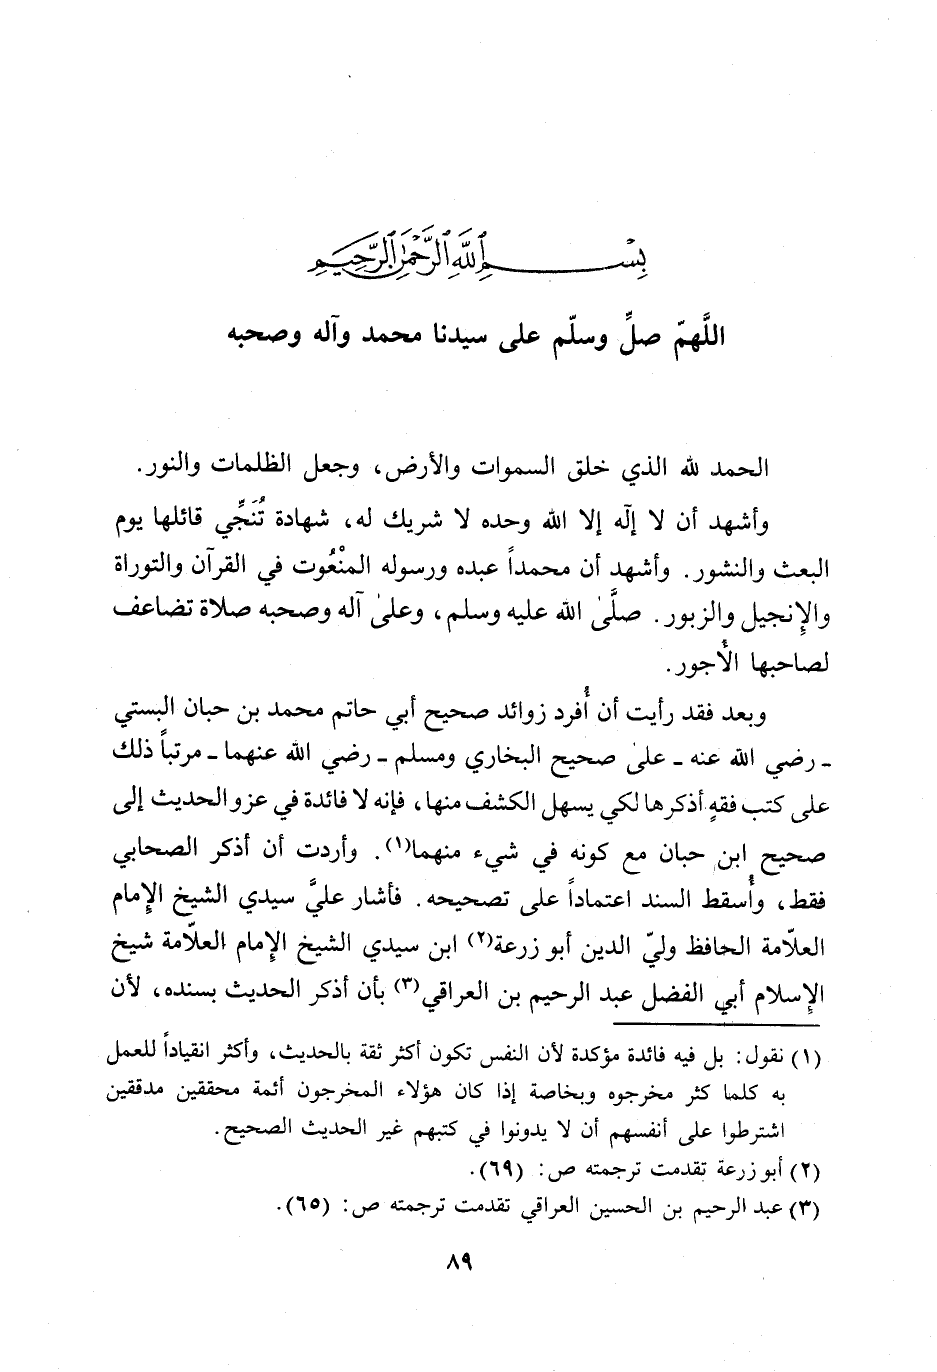 بِسْمِ اللَّهِ الرَّحْمَٰنِ الرَّحِيمِ
اللَّهمّ صلِّ وسلّم على سيدنا محمد وآله وصحبه
الحمد لله الذي خلق السموات والأرض، وجعل الظلمات والنور.
وأشهد أن لا إلٰه إلا الله وحده لا شريك له، شهادة تُنَجِّي قائلها يوم
البعث والنشور. وأشهد أن محمداً عبده ورسوله المنْعُوت في القرآن والتوراة
والإنجيل والزبور. صلَّىٰ الله عليه وسلم، وعلىٰ آله وصحبه صلاة تضاعف
لصاحبها الأُجور.
وبعد فقد رأيت أن أُفرد زوائد صحيح أبي حاتم محمد بن حبان البستي
ـ رضي الله عنه ـ علىٰ صحيح البخاري ومسلم ـ رضي الله عنهما ـ مرتباً ذلك
على كتب فقهٍ أذكرها لكي يسهل الكشف منها، فإنه لا فائدة في عزو الحديث إلى
صحيح ابن حبان مع كونه في شيء منهما(١). وأردت أن أذكر الصحابي
فقط، وأُسقط السند اعتماداً على تصحيحه. فأشار عليَّ سيدي الشيخ الإمام
العلّامة الحافظ وليّ الدين أبو زرعة(٢) ابن سيدي الشيخ الإمام العلّامة شيخ
الإسلام أبي الفضل عبد الرحيم بن العراقي(٣) بأن أذكر الحديث بسنده، لأن
(١) نقول: بل فيه فائدة مؤكدة لأن النفس تكون أكثر ثقة بالحديث، وأكثر انقياداً للعمل
به كلما كثر مخرجوه وبخاصة إذا كان هؤلاء المخرجون أئمة محققين مدققين
اشترطوا على أنفسهم أن لا يدونوا في كتبهم غير الحديث الصحيح.
(٢) أبو زرعة تقدمت ترجمته ص: (٦٩).
(٣) عبد الرحيم بن الحسين العراقي تقدمت ترجمته ص: (٦٥).
٨٩